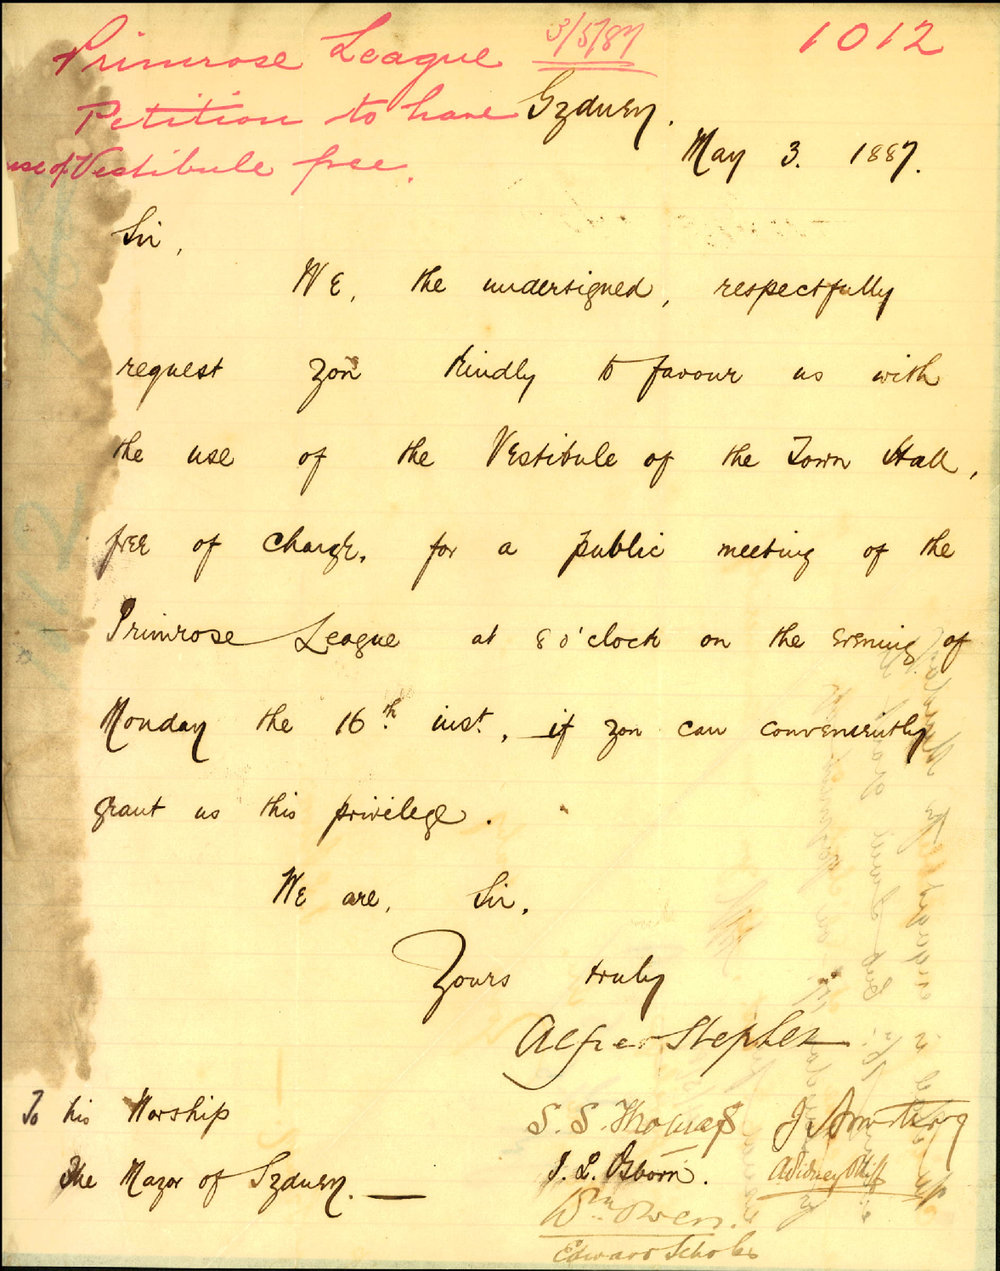 Primrose League 3/5/87 1012
Petition to have
use of Vestibule free.
Sydney.
May 3. 1887.
Sir,
We, the undersigned, respectfully
request you kindly to favour us with
the use of the Vestibule of the Town Hall,
free of charge, for a public meeting of the
Primrose League at 8 o'clock on the evening of
Monday the 16th inst., if you can conveniently
grant us this privilege.
We are, Sir,
Yours truly
Alfred Stephen
To his Worship
The Mayor of Sydney.
S. S. Thomas J Armstrong
J. L. Osborn.
Wm Owen.
Edward Scholes